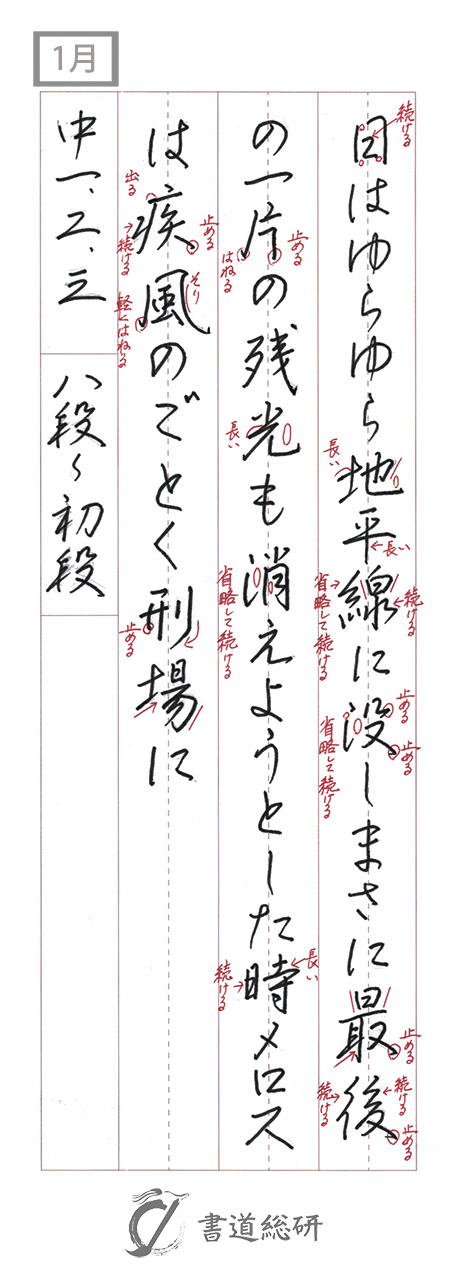 1月
日はゆらゆら地平線に没しまさに最後
の一片の残光も消えようとした時メロス
は疾風のごとく刑場に
中一、二、三
八段〜初段
続ける
長い
り
長い
続ける
省略して続ける
止める
止める
省略して続ける
止める
続ける
続ける
止める
止める
はねる
長い
省略して続ける
長い
続ける
出る
止める
続ける
そり
軽くはねる
止める
書道総研